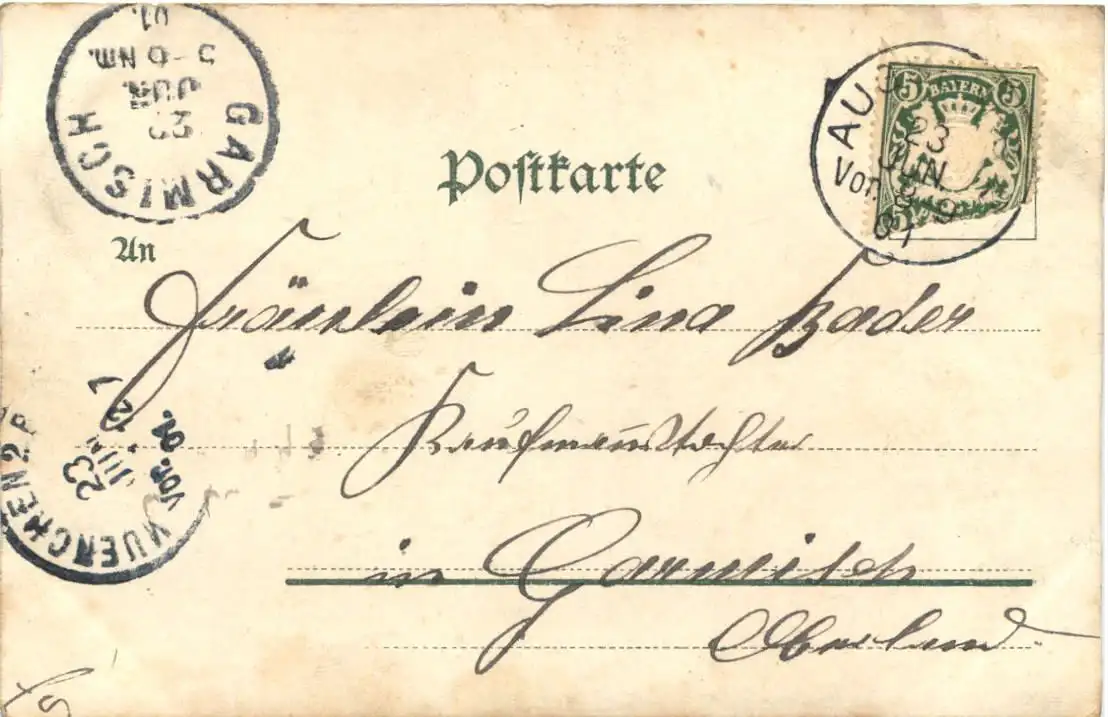 GARMISCH
23
JUN.
5-6 NM.
01.
5 BAYERN 5
5
AUG
23
JUN.
Vor. 8-9
01
Postkarte
An
Fräulein Lina Bader
Kaufmannstochter
in Garmisch
Oberland.
MUENCHEN 2. B
23
JUN
Vor. 01.